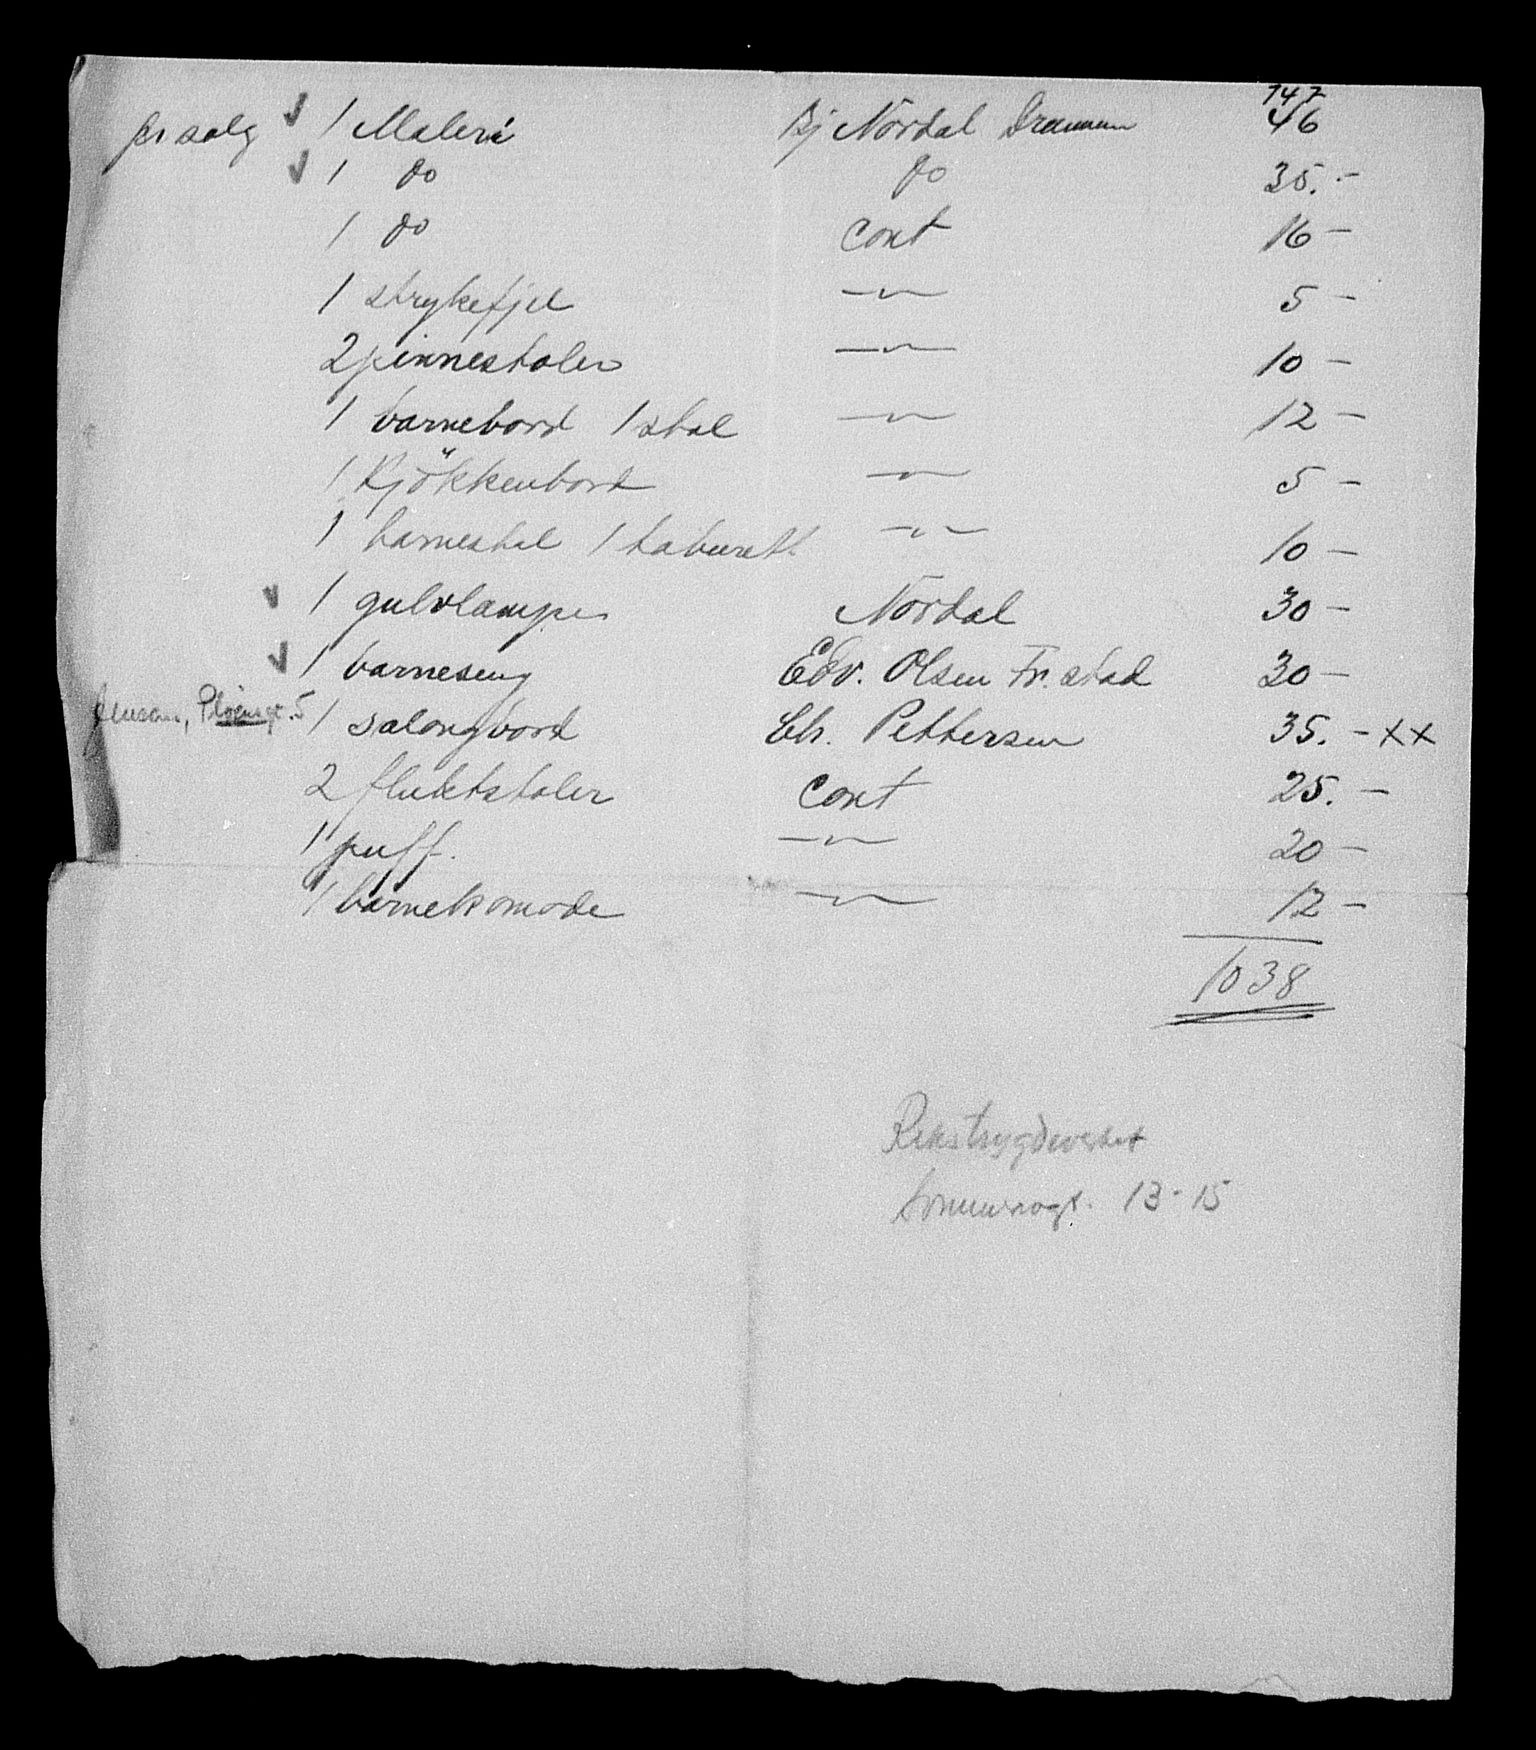 747
før salg ✓ 1 Maleri Bj Nordal Drammen 46
✓ 1 do do 35.-
1 do cont 16 -
1 strykefjel -"- 5 -
2 pinnestoler -"- 10 -
1 barnebord 1 stol -"- 12 -
1 Kjökkenbord -"- 5 -
1 barnestol 1 taburett -"- 10 -
✓ 1 gulvlampe Nordal 30 -
✓ 1 barneseng Edv. Olsen Fr.stad 30 -
Jensen, Pløensgt. 5 1 salongbord Chr. Pettersen 35. - xx
2 fluktstoler cont 25. -
1 puff. -"- 20 -
1 barnekomode -"- 12 -
1038
Rikstrygdeverket
Sommerrogt. 13-15